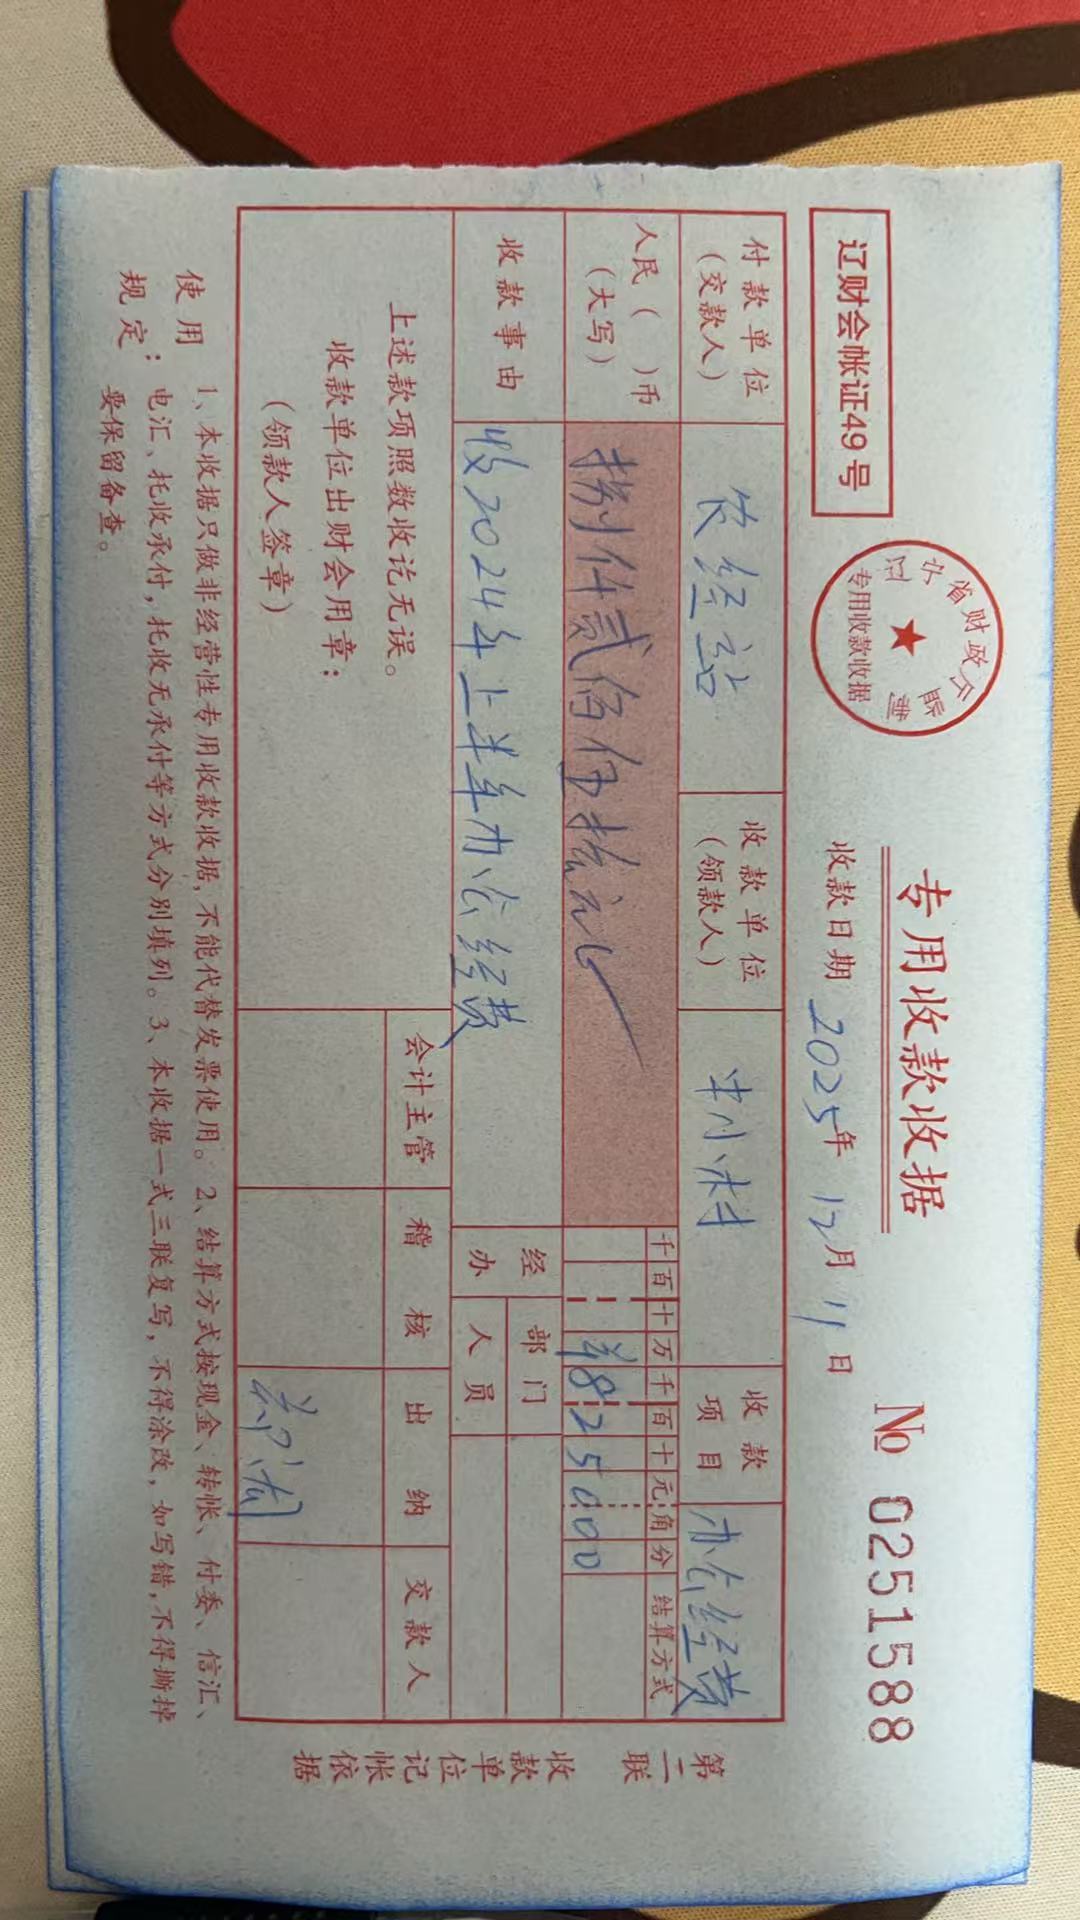 辽财会帐证49号
辽宁省财政厅监制
专用收款收据
专用收款收据
№ 0251588
收款日期 2025年 12月 11日
付款单位（交款人） 农经站 收款单位（领款人） 村 收款项目 办公经费
人民（ ）币（大写） 捌仟贰佰伍拾元 千百十万千百十元角分 结算方式
¥8250.00
收款事由 收2024年上半年办公经费 经办 部门 人员
上述款项照数收讫无误。
收款单位出财会用章：
（领款人签章）
会计主管 稽核 出纳 交款人
第二联 收款单位记帐依据
使用规定：1、本收据只做非经营性专用收款收据，不能代替发票使用。2、结算方式按现金、转帐、付委、信汇、
电汇、托收承付，托收无承付等方式分别填列。3、本收据一式三联复写，不得涂改，如写错，不得撕掉
要保留备查。